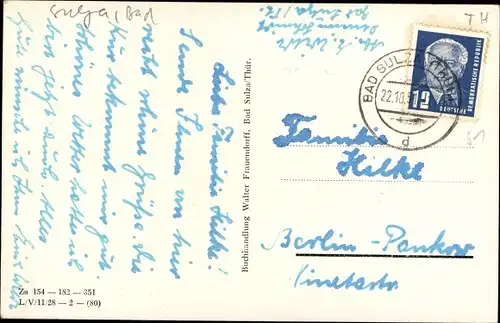 Sulza, Bad
TH
Liebe Familie Hilke!
Sende Ihnen von hier
recht schöne Grüße. Die
Kur bekommt mir gut.
Schönes Wetter hatte ich
bis jetzt auch. Alles
Gute wünscht
Buchhandlung Walter Frauendorff, Bad Sulza/Thür.
Za 154 – 182 – 351
L/V/11/28 – 2 – (80)
BAD SULZA
22.10.
d
12
DEUTSCHE
DEMOKRATISCHE REPUBLIK
Familie
Hilke
Berlin-Pankow
Vinetastr.